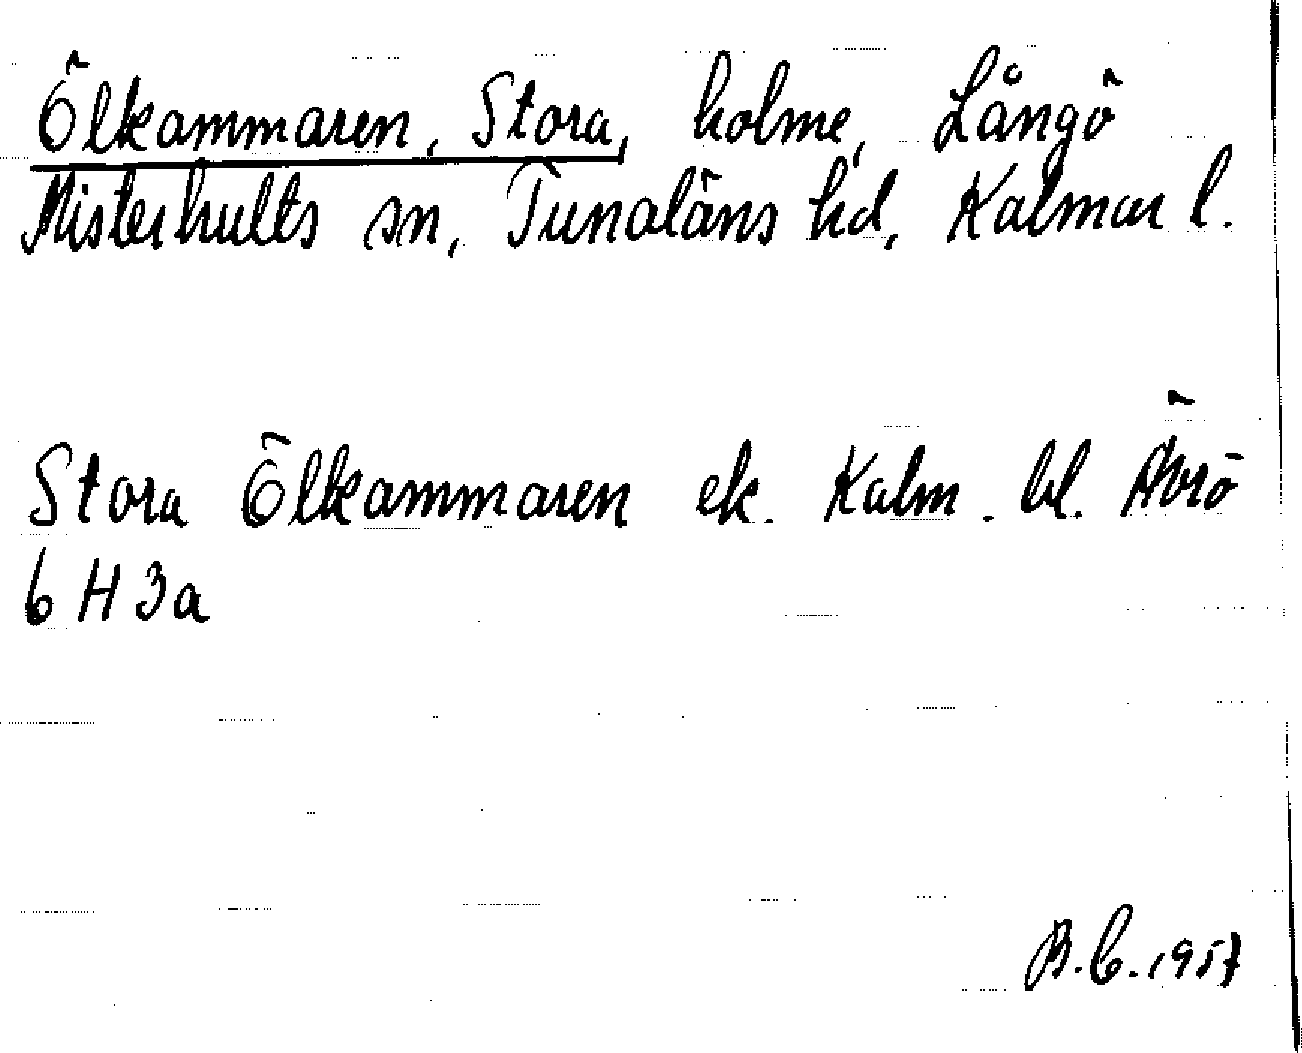 Ölkammaren, Stora, holme, Långö
Misterhults sn, Tunaläns hd, Kalmar l.
Stora Ölkammaren ek. Kalm. bl. Ävrö
6 H 3a
B.C. 1957